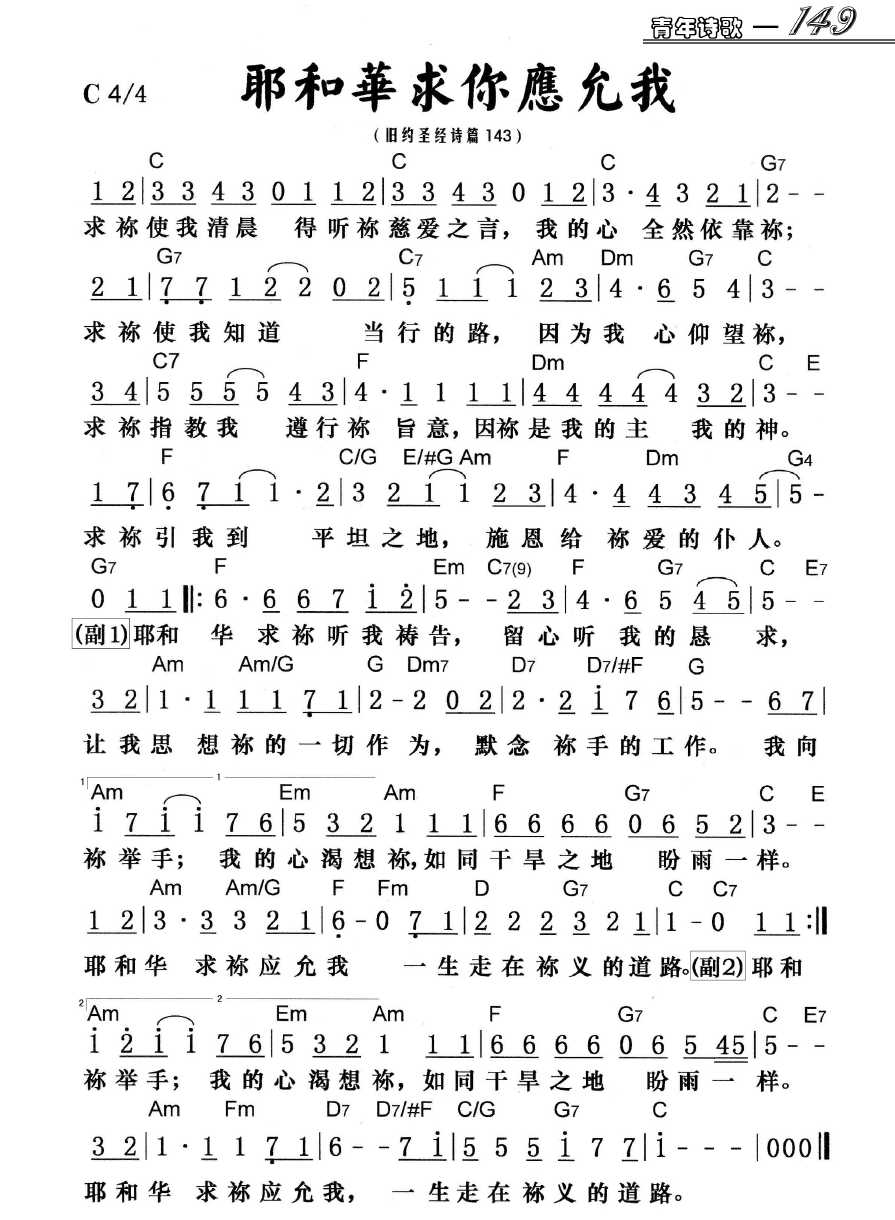 青年诗歌 — 149
耶和華求你應允我
C 4/4
（旧约圣经诗篇 143）
C C C G7
1 2|3 3 4 3 0 1 1 2|3 3 4 3 0 1 2|3· 4 3 2 1|2 - -
求祢使我清晨 得听祢慈爱之言，我的心 全然依靠祢；
G7 C7 Am Dm G7 C
2 1|7 7 1 2 2 0 2|5 1 1 1 2 3|4· 6 5 4|3 - -
求祢使我知道 当行的路， 因为我 心仰望祢，
C7 F Dm C E
3 4|5 5 5 5 4 3|4· 1 1 1 1|4 4 4 4 4 3 2|3 - -
求祢指教我 遵行祢 旨意，因祢是我的主 我的神。
F C/G E/#G Am F Dm G4
1 7|6 7 1 1· 2|3 2 1 1 2 3|4· 4 4 3 4 5|5 -
求祢引我到 平坦之地， 施恩给 祢爱的仆人。
G7 F Em C7(9) F G7 C E7
0 1 1‖: 6· 6 6 7 i 2̇|5 - - 2 3|4· 6 5 4 5|5 - -
(副1)耶和 华 求祢听我祷告， 留心听 我的恳 求，
Am Am/G G Dm7 D7 D7/#F G
3 2|1· 1 1 1 7 1|2 - 2 0 2|2· 2 i 7 6|5 - - 6 7|
让我思 想祢的一切作 为， 默念 祢手的工作。 我向
1 1
Am Em Am F G7 C E
i 7 i i 7 6|5 3 2 1 1 1|6 6 6 6 0 6 5 2|3 - -
祢举手； 我的心渴想祢，如同干旱之地 盼雨一样。
Am Am/G F Fm D G7 C C7
1 2|3· 3 3 2 1|6 - 0 7 1|2 2 2 3 2 1|1 - 0 1 1:‖
耶和华 求祢应允我 一生走在祢义的道路。(副2)耶和
2 2
Am Em Am F G7 C E7
i 2̇ i i 7 6|5 3 2 1 1 1|6 6 6 6 0 6 5 45|5 - -
祢举手； 我的心渴想祢，如同干旱之地 盼雨一 样。
Am Fm D7 D7/#F C/G G7 C
3 2|1· 1 1 7 1|6 - - 7 i|5 5 5 i 7 7|i - - -|000‖
耶和华 求祢应允我， 一生走在祢义的道路。